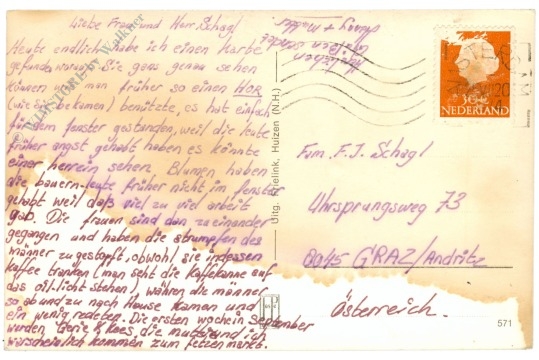 Liebe Frau und Herr Schagl
Heute endlich habe ich einen Karte
gefunden worauf Sie ganz genau sehen
können wie man früher so einen HOR
(wie Sie bekamen) benützte, es hat einfach
für dem fenster gestanden, weil die leute
früher angst gehabt haben es könnte
einer herein sehen. Blumen haben
die bauern-leute früher nicht im fenster
gehabt weil das viel zu viel arbeit
gab. Die frauen sind dan zu einander
gegangen und haben die strumpfen des
männer zu gestopft, obwohl sie indessen
kaffee tranken (man seht die kaffekanne auf
das oil-licht stehen), währen die männer
so ab und zu nach Hause kamen und
ein wenig redeten. Die ersten wochen September
wurden Gerie & Kees, die mutti und ich
warscheinlich kommen zum fetzenmarkt.
Herzlichen
+ Mutter
Uitg. Rielink, Huizen (N.H.)
30c
NEDERLAND
Fam. F.J. Schagl
Uhrsprungsweg 73
8045 GRAZ/Andritz
Österreich.
571